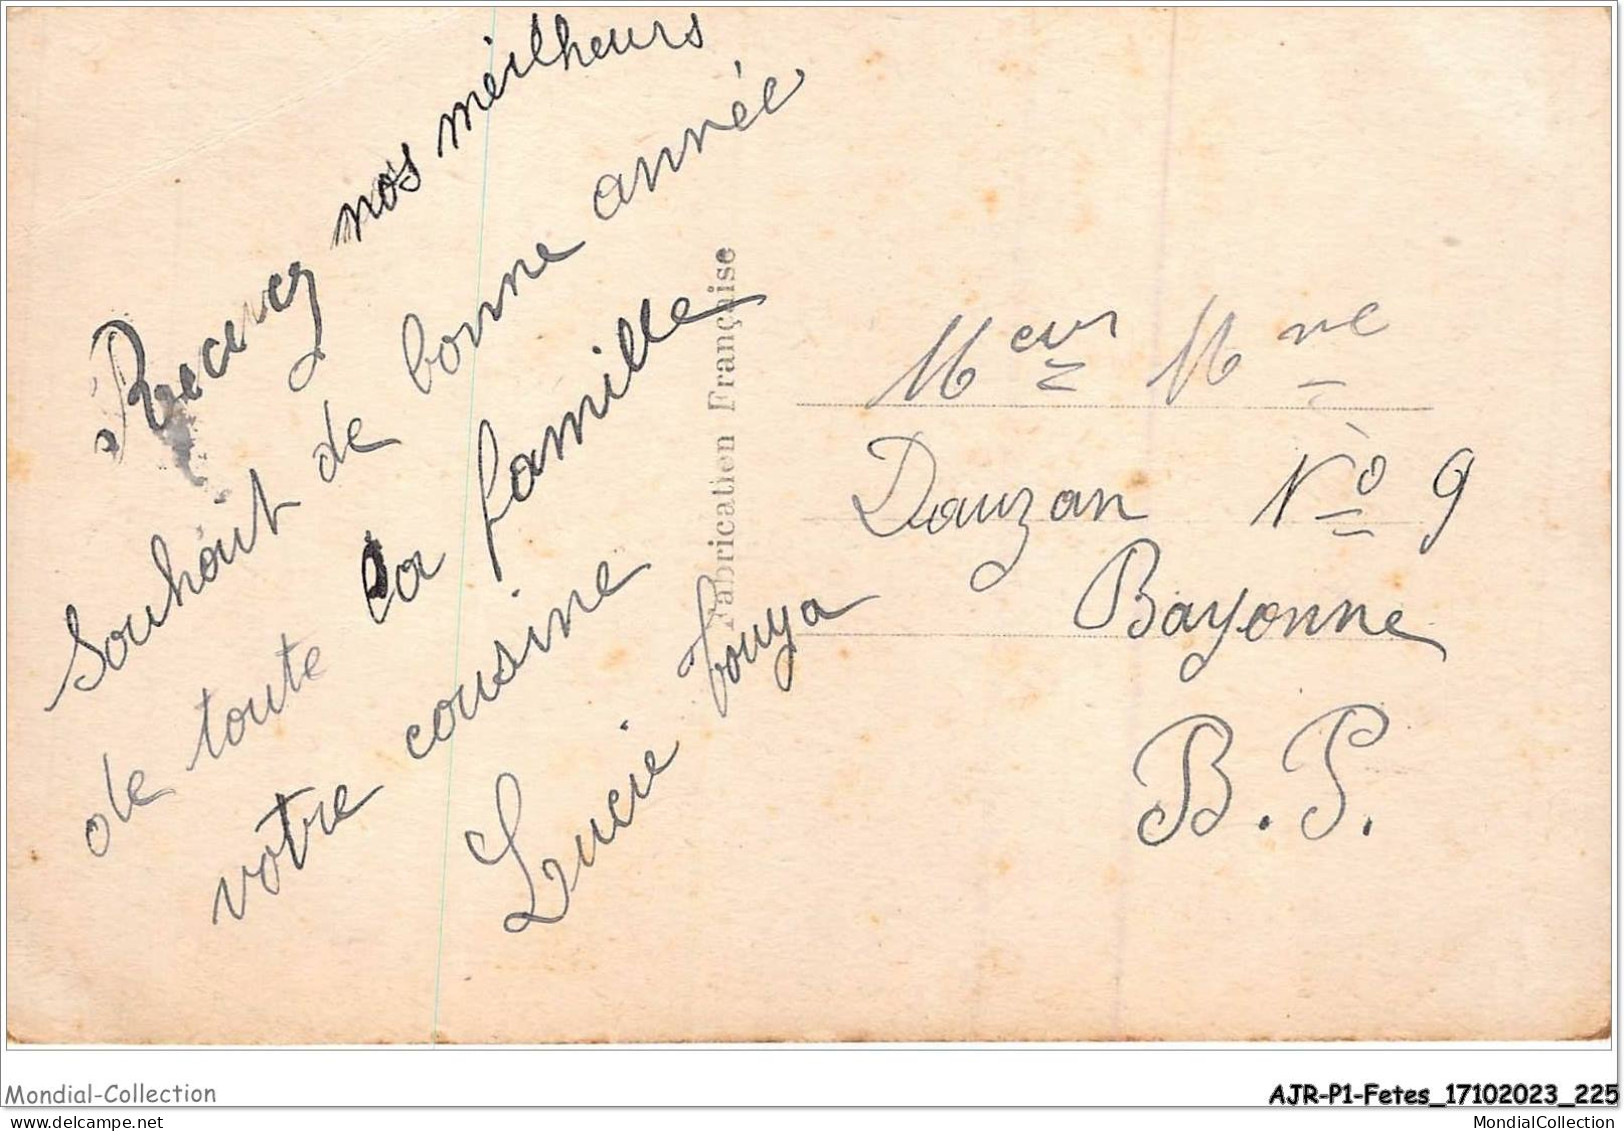 Recevez nos meilheurs
Souhait de bonne année
de toute la famille
votre cousine
Lucie Touya
Fabrication Française
Meur Mme
Dauzan No 9
Bayonne
B.P.
Mondial-Collection
AJR-P1-Fetes_17102023_225
mondial-collection.com
MondialCollection